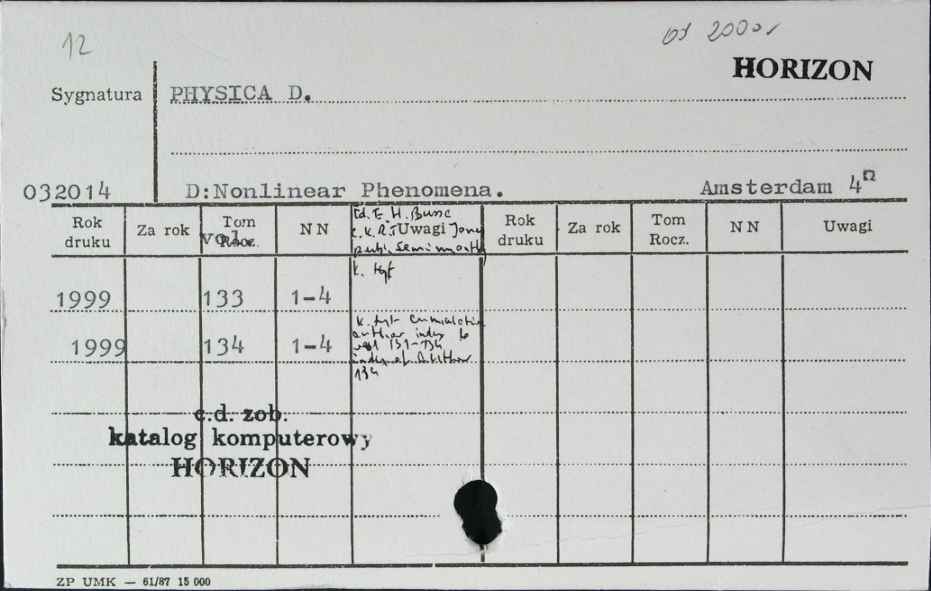 12
od 2000r
HORIZON
Sygnatura PHYSICA D.
032014 D:Nonlinear Phenomena. Amsterdam 4Ω
Rok druku Za rok Tom Rocz. NN Uwagi Rok druku Za rok Tom Rocz. NN Uwagi
vol.
Ed. E. H.
publ. semimonthly
k. tyt
1999 133 1-4
k. tyt. cumulative
author index to
vol 131-134
index of Author
134
1999 134 1-4
c.d. zob.
katalog komputerowy
HORIZON
ZP UMK — 61/87 15 000